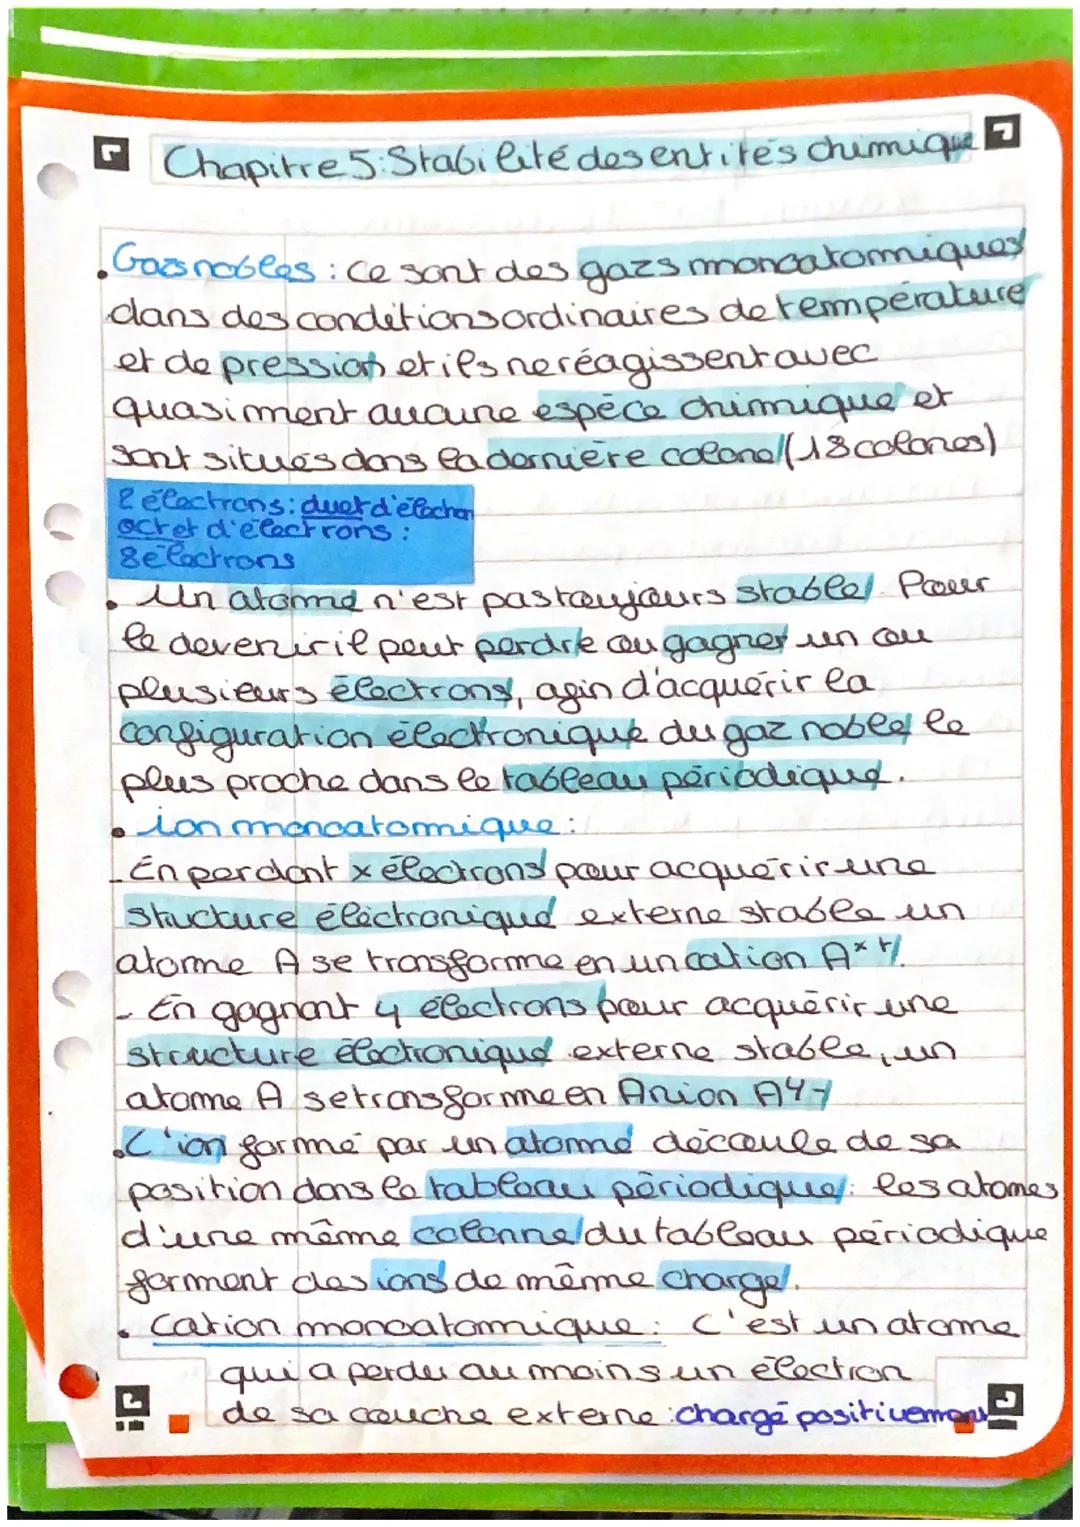 Chapitre 5: Stabilité des entités chimique
• Gaz nobles : ce sont des gazs monoatomiques
dans des conditions ordinaires de température
et de pression et ils ne réagissent avec
quasiment aucune espèce chimique et
sont situés dans la dernière colone (18 colones)
2 électrons : duet d'électron
octet d'électrons :
8 électrons
• Un atome n'est pas toujours stable. Pour
le devenir il peut perdre ou gagner un ou
plusieurs électrons, afin d'acquérir la
configuration électronique du gaz noble le
plus proche dans le tableau périodique.
• ion monoatomique :
- En perdant x électrons pour acquérir une
stucture électronique externe stable un
atome A se transforme en un cation Aˣ⁺.
- En gagnant y électrons pour acquérir une
structure électronique externe stable, un
atome A se transforme en Anion Ay-
• L'ion formé par un atome découle de sa
position dans le tableau périodique : les atomes
d'une même colonne du tableau périodique
forment des ions de même charge.
• Cation monoatomique : C'est un atome
qui a perdu au moins un électron
de sa couche externe : chargé positivement